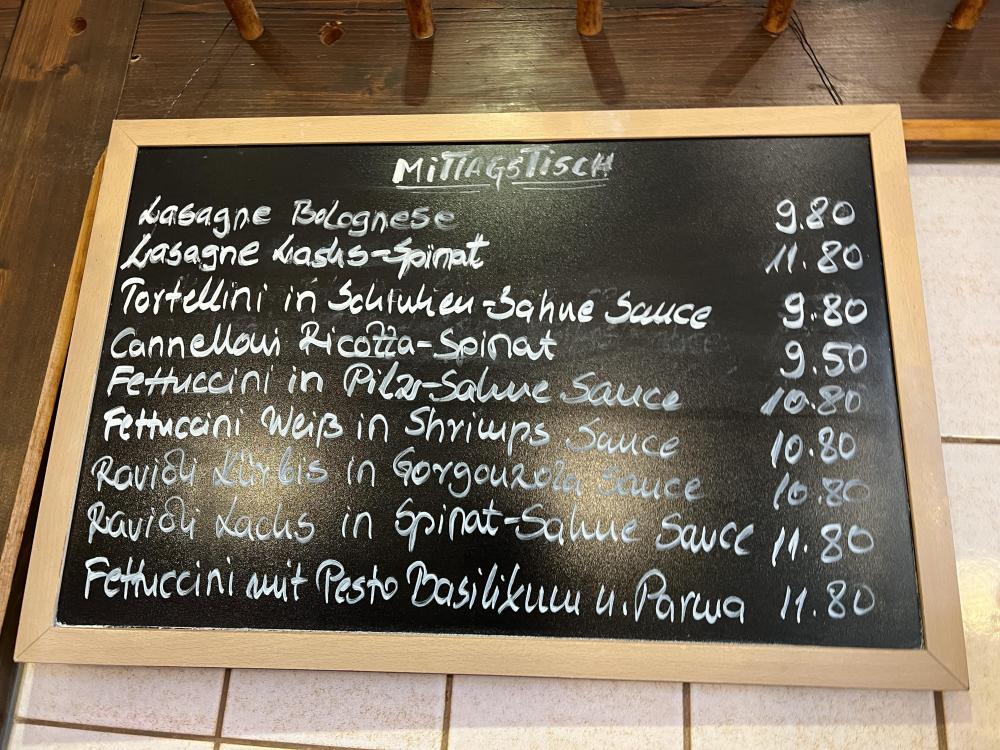 MITTAGSTISCH
Lasagne Bolognese 9.80
Lasagne Lachs-Spinat 11.80
Tortellini in Schinken-Sahne Sauce 9.80
Cannelloni Ricotta-Spinat 9.50
Fettuccini in Pilz-Sahne Sauce 10.80
Fettuccini Weiß in Shrimps Sauce 10.80
Ravioli Kürbis in Gorgonzola Sauce 10.80
Ravioli Lachs in Spinat-Sahne Sauce 11.80
Fettuccini mit Pesto Basilikum u. Parma 11.80